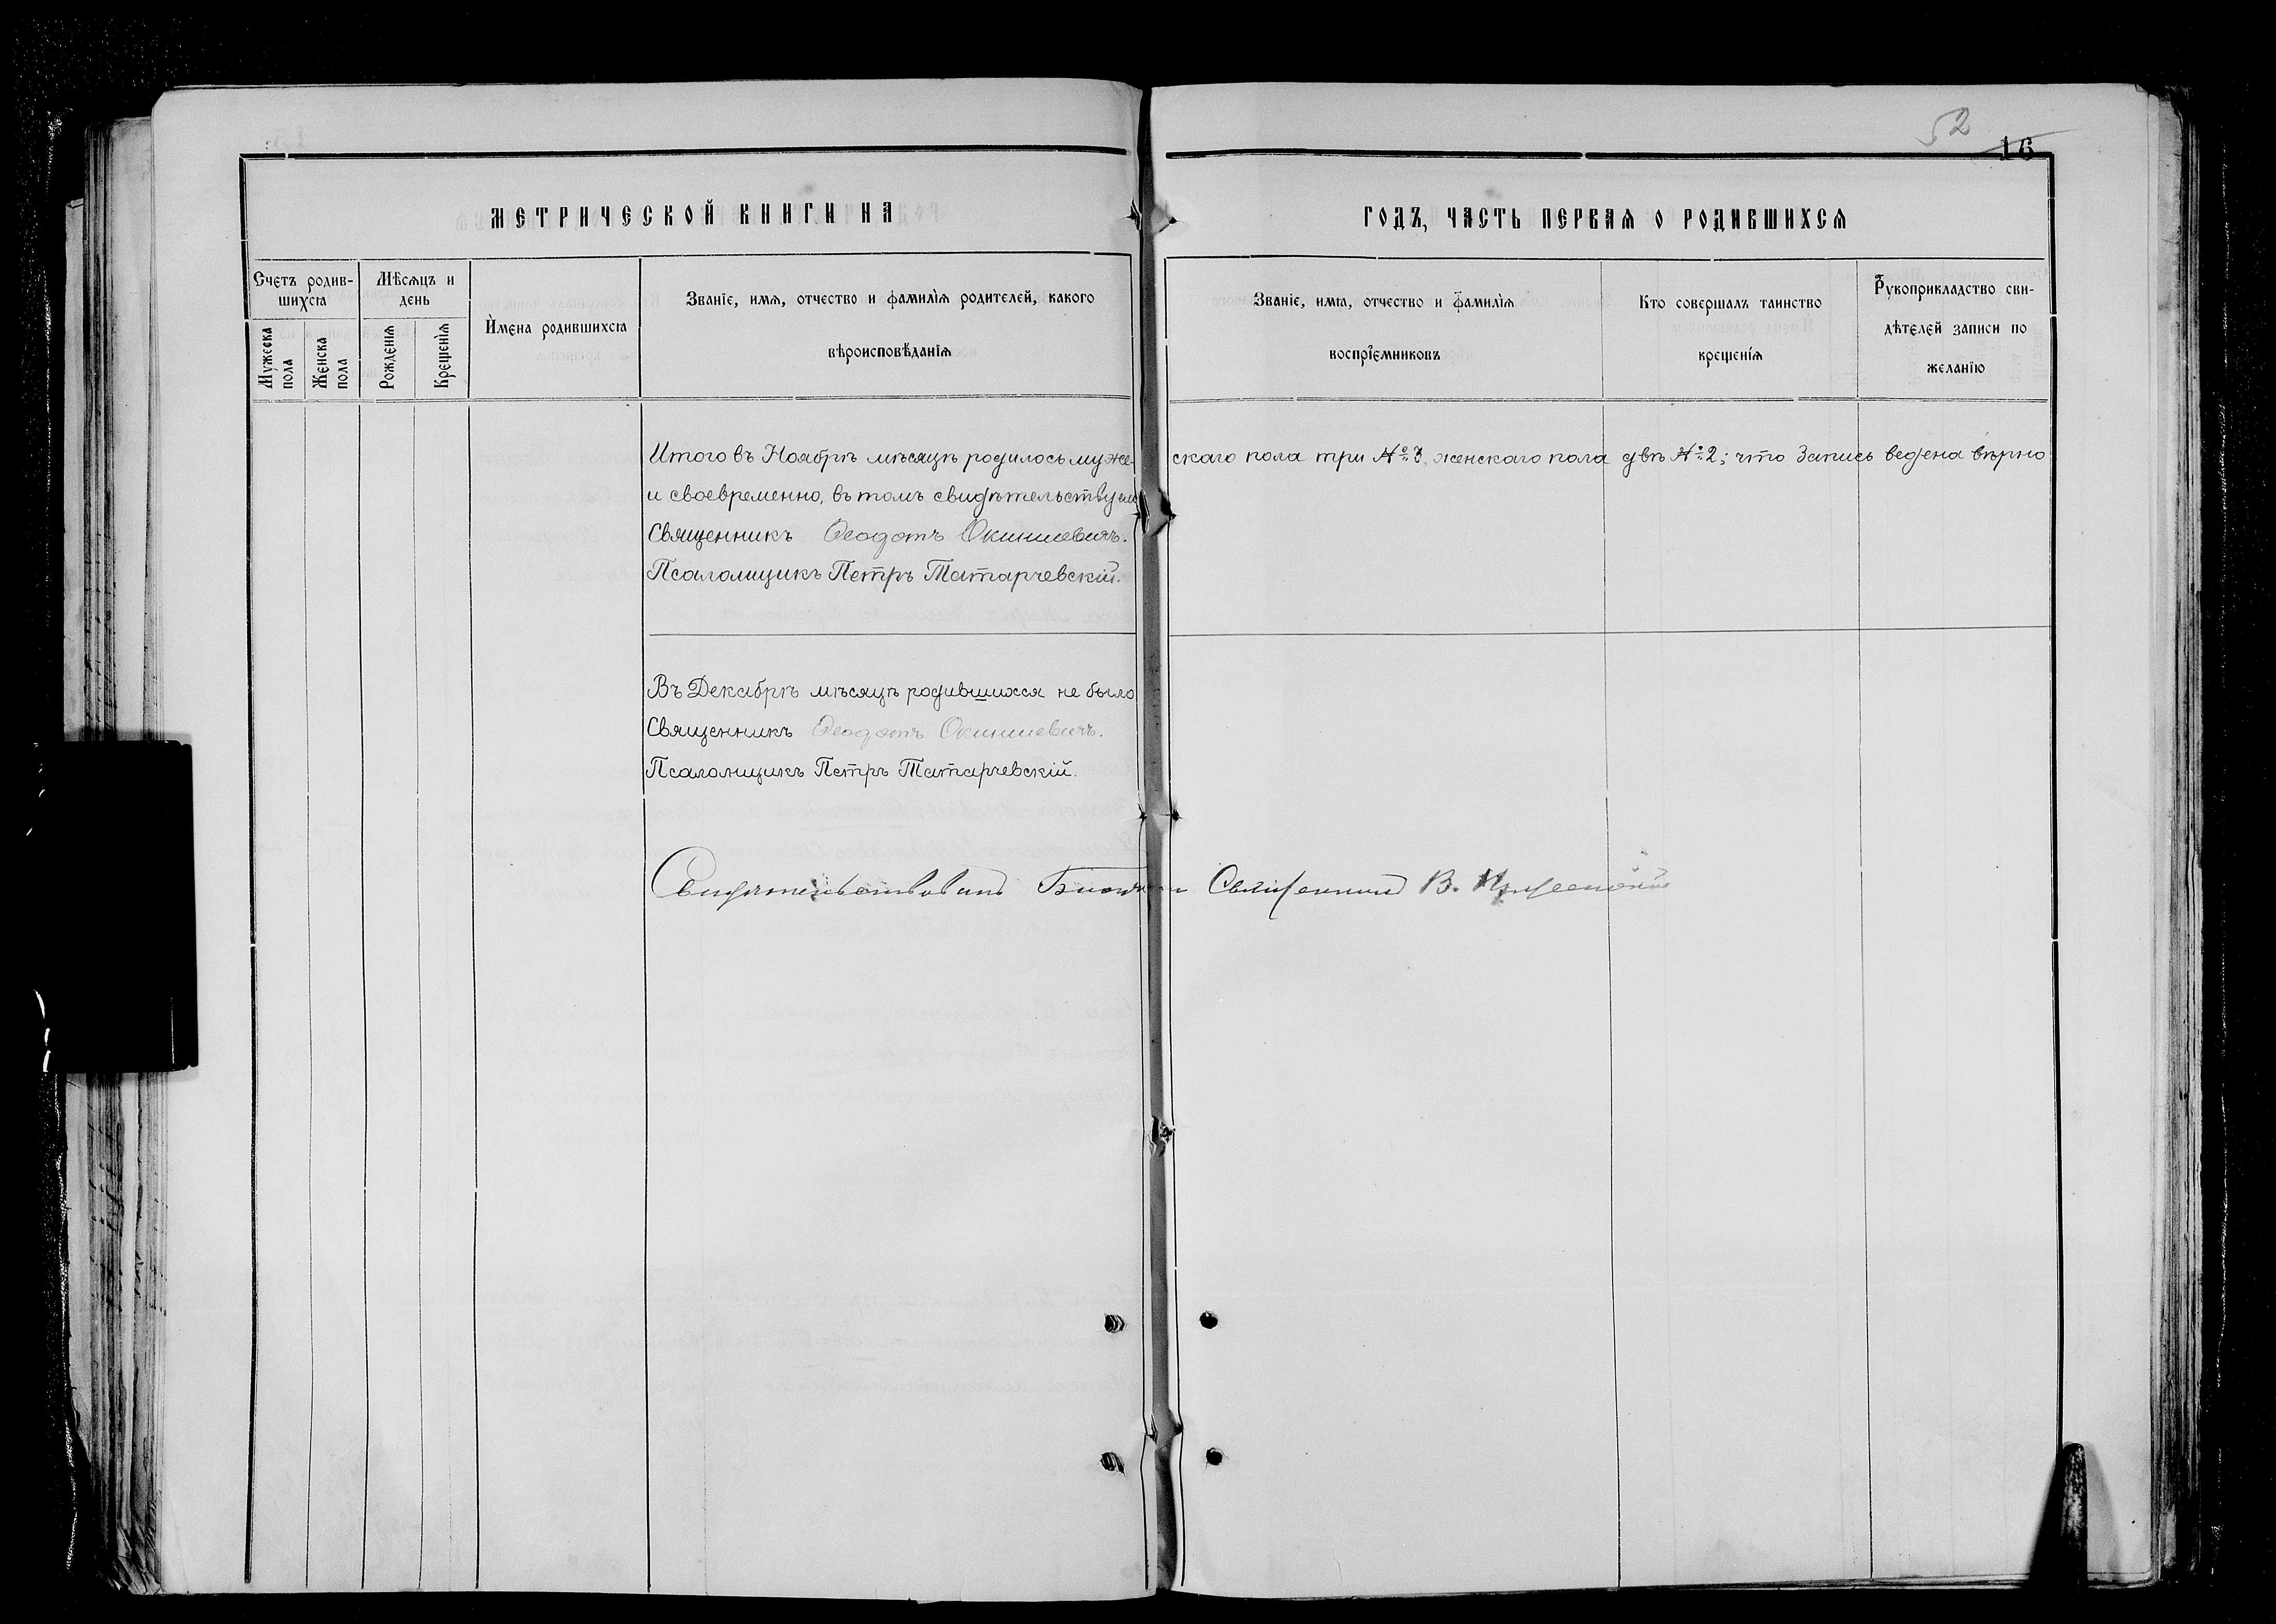 52
16
МЕТРИЧЕСКОЙ КНИГИ НА ГОДЪ, ЧАСТЬ ПЕРВАЯ О РОДИВШИХСЯ
Счетъ родив-
шихся
Мужеска
пола
Женска
пола
Мѣсяцъ и
день
Рожденія
Крещенія
Имена родившихся
Званіе, имя, отчество и фамилія родителей, какого
вѣроисповѣданія
Званіе, имя, отчество и фамилія
воспріемниковъ
Кто совершалъ таинство
крещенія
Рукоприкладство сви-
дѣтелей записи по
желанію
Итого въ Ноябрѣ мѣсяцѣ родилось муже- скаго пола три № 3, женскаго пола двѣ № 2; что запись ведена вѣрно
и своевременно, въ томъ свидѣтельствуем
Священникъ Ѳеодотъ Окиншевичъ.
Псаломщикъ Петръ Татарчевскій.
Въ Декабрѣ мѣсяцѣ родившихся не было
Священникъ Ѳеодотъ Окиншевичъ.
Псаломщикъ Петръ Татарчевскій.
Свидѣтельствовалъ Священникъ В.